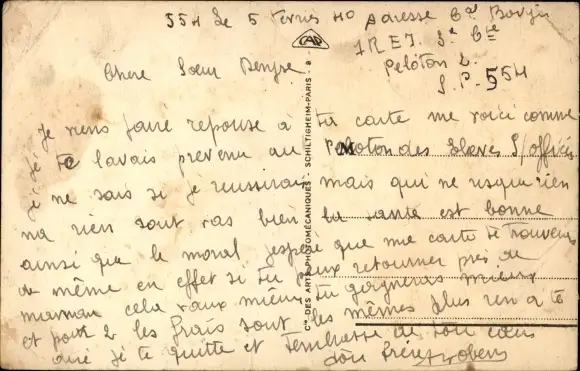 554 Le 5 février 40 Adresse
1 REI. 5e Cie
Peloton 2.
S.P. 554
CAP
Chere Soeur Denyse
Je viens faire reponse à ta carte me voici comme
te lavais prevenu au Peloton des Eleves S/officier
Je ne sais si je reussirai mais qui ne risque rien
na rien sont pas bien la santé est bonne
ainsi que le moral jespere que me carte te trouvera
de même en effet si tu peux retourner près de
maman cela vaux mieux tu gagneras mieux
et pour 2 les frais sont les mêmes plus rien a te
dire je te quitte et t'embrasse de tout coeur
ton frère
Cie DES ARTS PHOTOMÉCANIQUES - SCHILTIGHEIM-PARIS - 8